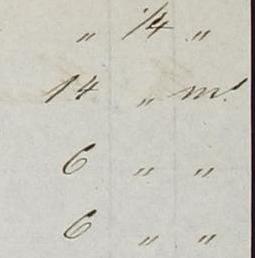 " 14 "
14 " m!
6 " "
6 " "